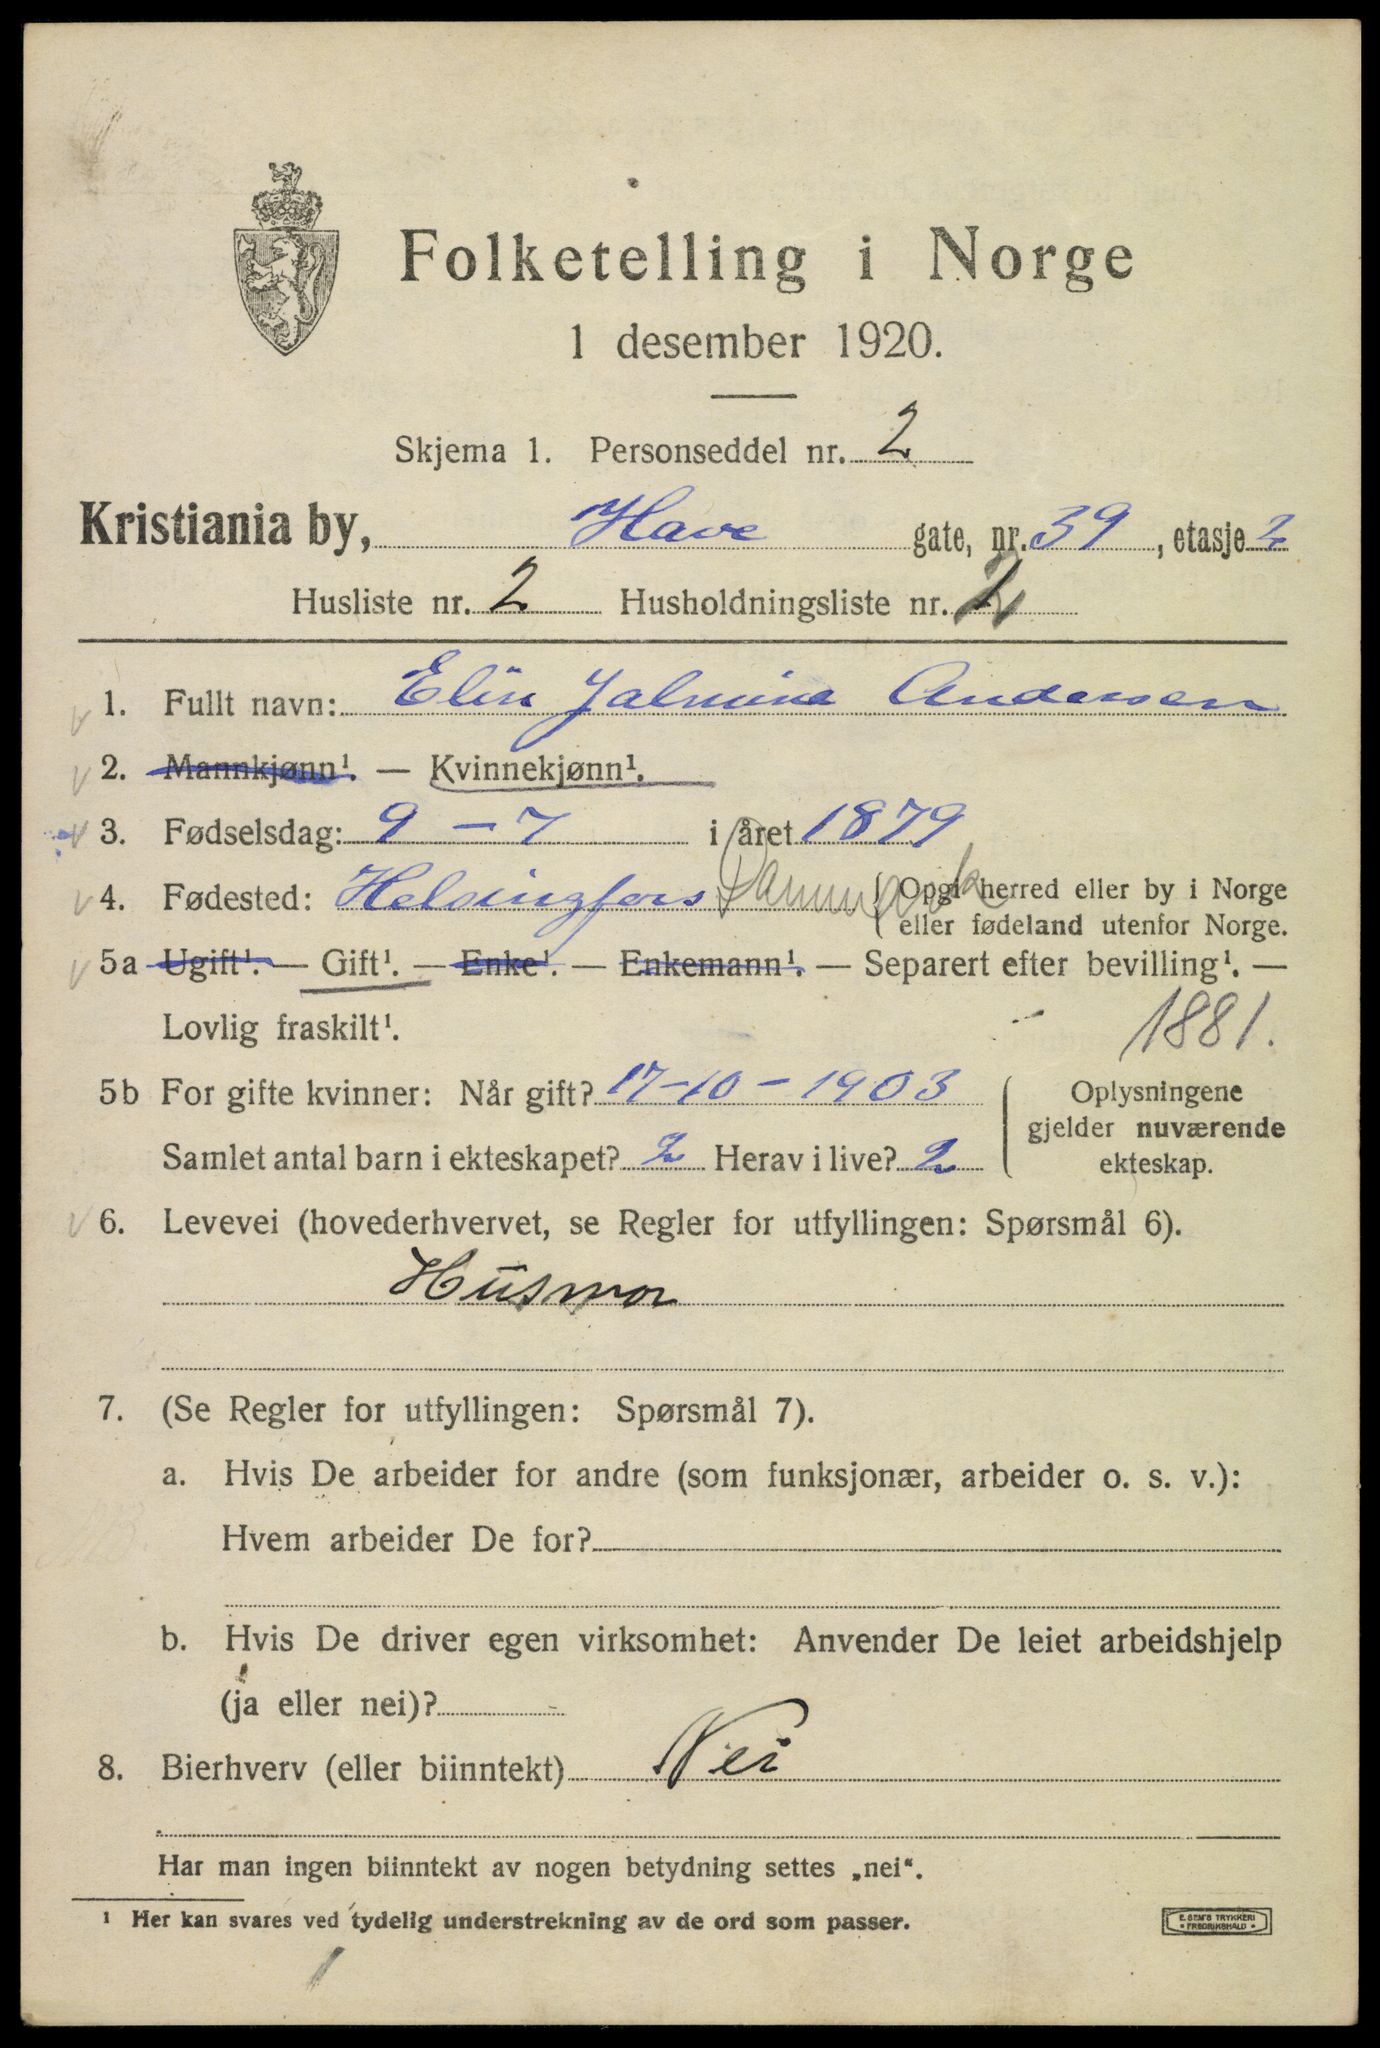 Folketelling i Norge
1 desember 1920.
Skjema 1. Personseddel nr. 2
Kristiania by, Have gate, nr. 39, etasje 2
Husliste nr. 2 Husholdningsliste nr. 2
1. Fullt navn: Elin Jalmina Andersen
2. Mannkjønn¹. — Kvinnekjønn¹.
3. Fødselsdag: 9 - 7 i året 1879
4. Fødested: Helsingfors Danmark Opgi herred eller by i Norge
eller fødeland utenfor Norge.
5a Ugift¹. — Gift¹. — Enke¹. — Enkemann¹. — Separert efter bevilling¹. —
Lovlig fraskilt¹. 1881.
5b For gifte kvinner: Når gift? 17-10-1903 Oplysningene
gjelder nuværende
Samlet antal barn i ekteskapet? 2 Herav i live? 2 ekteskap.
6. Levevei (hovederhvervet, se Regler for utfyllingen: Spørsmål 6).
Husmor
7. (Se Regler for utfyllingen: Spørsmål 7).
a. Hvis De arbeider for andre (som funksjonær, arbeider o. s. v.):
Hvem arbeider De for?
b. Hvis De driver egen virksomhet: Anvender De leiet arbeidshjelp
(ja eller nei)? -
8. Bierhverv (eller biinntekt) Nei
Har man ingen biinntekt av nogen betydning settes „nei“.
¹ Her kan svares ved tydelig understrekning av de ord som passer.
E. SEM'S TRYKKERI
• FREDRIKSHALD •